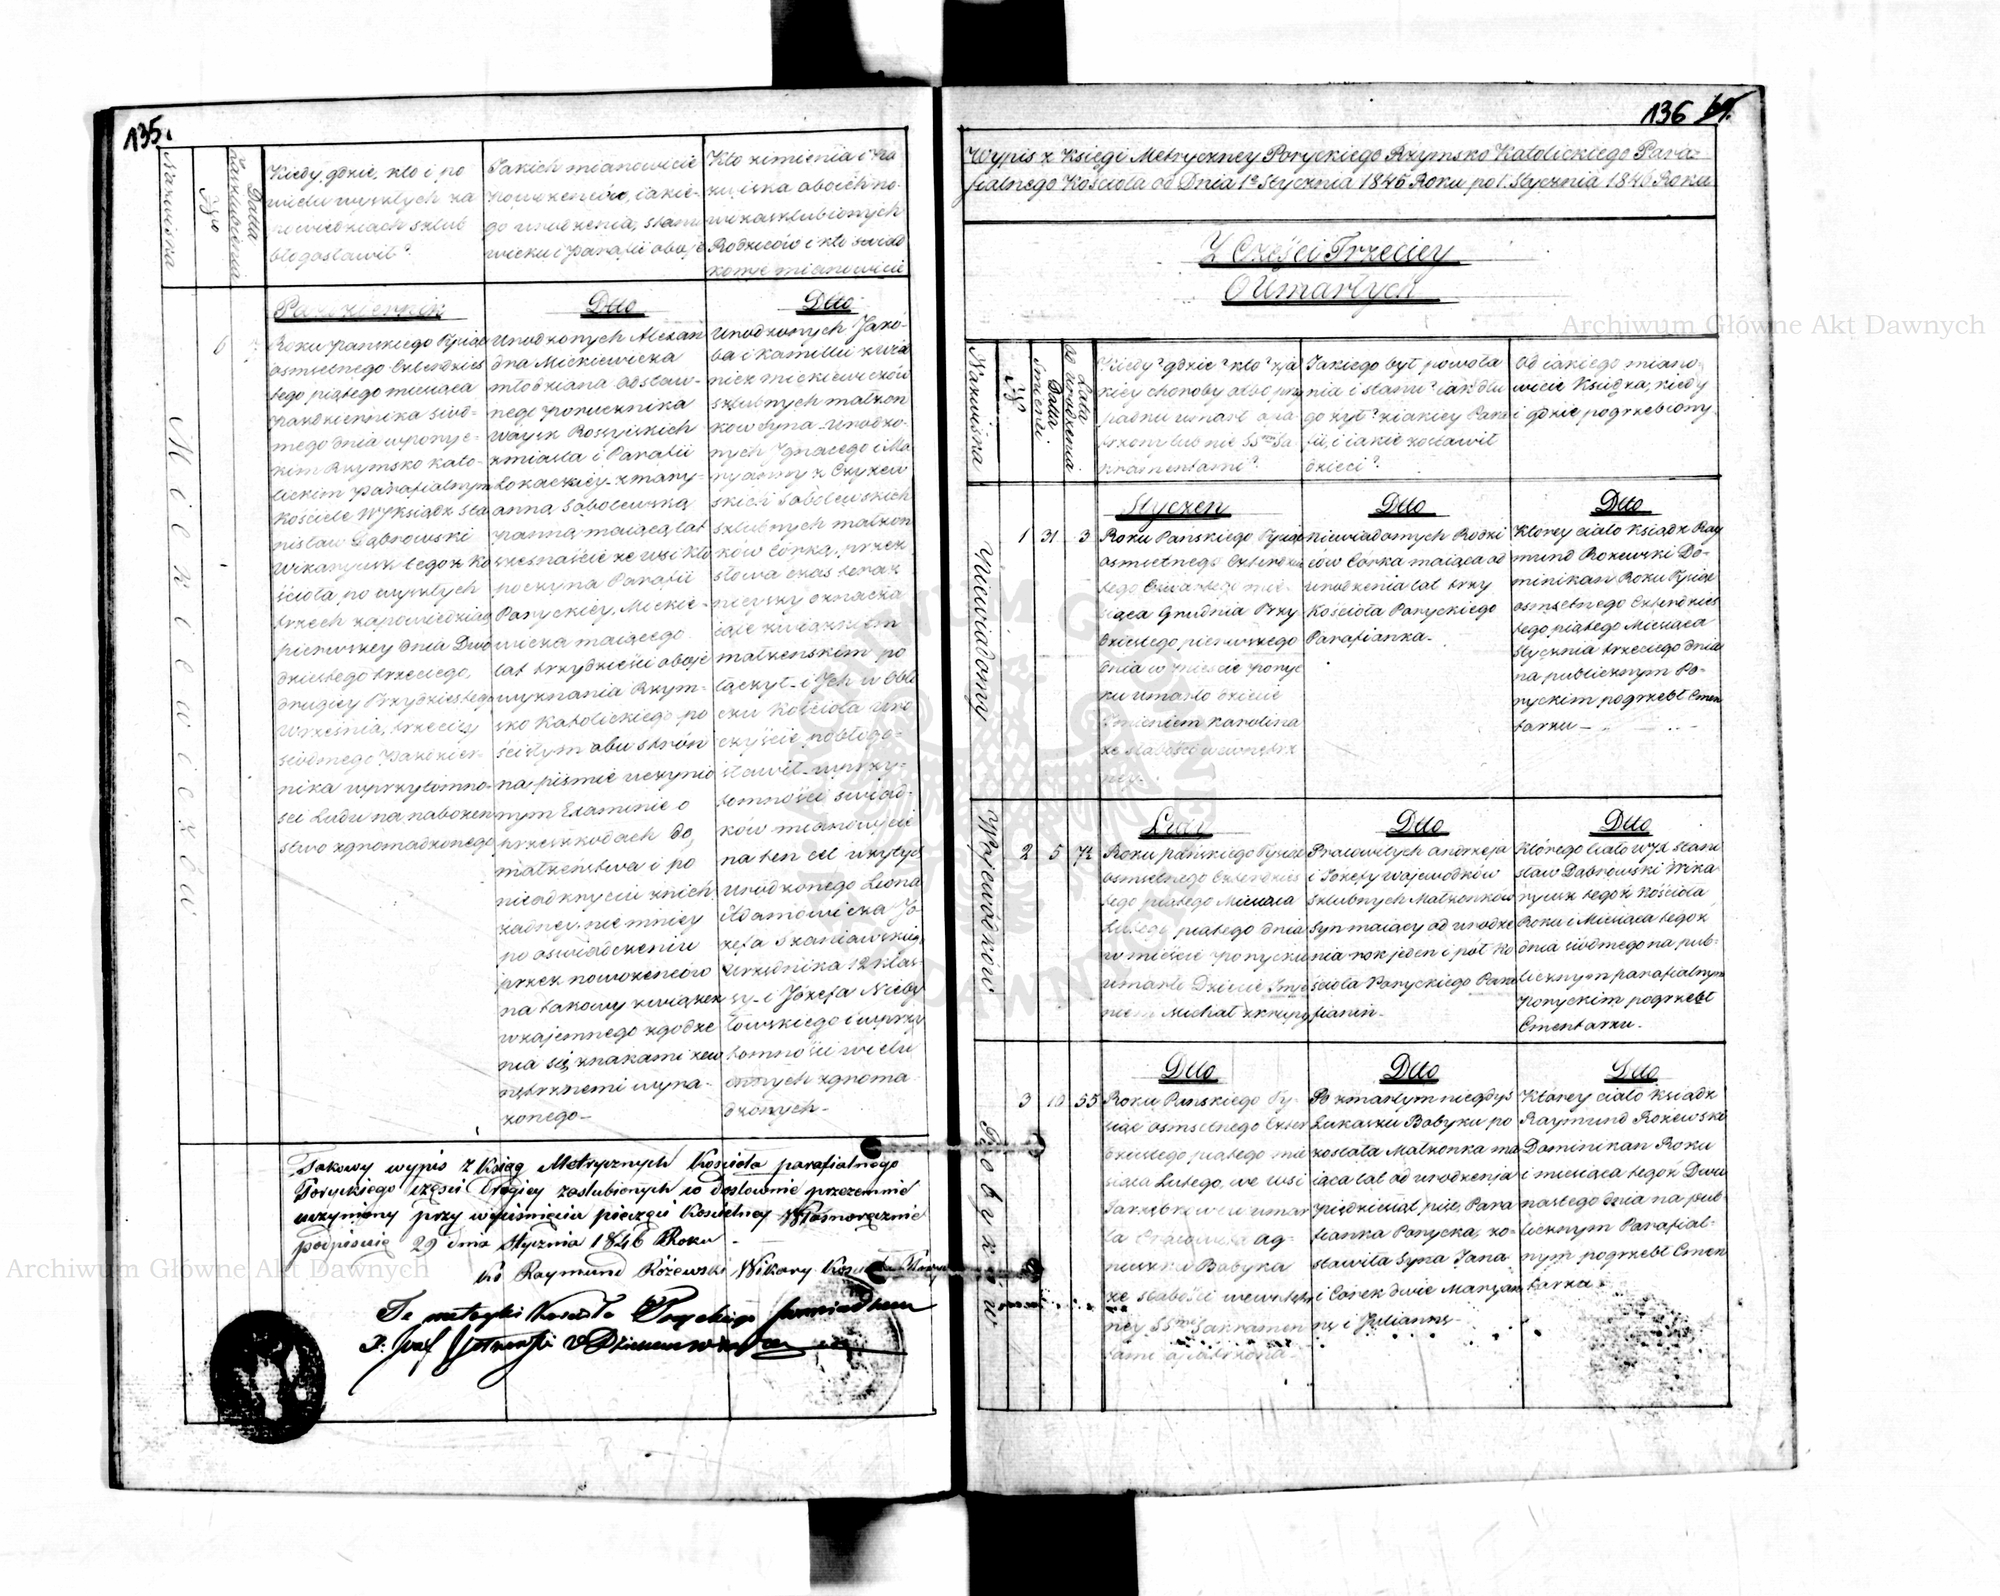 135.
Nazwiska
No
Datta
Zaślubienia
Kiedy, gdzie, kto i po
wielu wyszłych za
powiedziach szlub
błogosławił?
Jakich mianowicie
Nowożeńców, jakie-
go urodzenia, stanu
wieku i Parafii oboje
Kto z imienia i na
zwiska oboich no-
wozaszlubionych
Rodziców i kto świad
kowie mianowicie
Październik
Dtto
Dtto
Mickiewiczów
6
7
Roku Pańskiego Tysiąc
osmsetnego czterdzies
tego piątego miesiąca
Października siód-
mego dnia w Poryc-
kim Rzymsko Kato-
lickim parafialnym
Kościele WJXsiądz Sta
nisław Dąbrowski
Wikaryusz tegoż Ko
ścioła po wyszłych
trzech zapowiedziach
pierwszey dnia Dwu
dziestego trzeciego,
drugiey Trzydziestego
Września, trzeciey
siódmego Paździer-
nika w przytomno-
ści Ludu na nabożeń
stwo zgromadzonego
Urodzonych Alexan
dra Mickiewicza
młodziana odstaw-
nego porucznika
Woysk Rossyiskich
z miasta i Parafii
Łokackiey z Mary-
anną Sobolewską
panną maiącą lat
szesnaście ze wsi Kło
poczyna Parafii
Poryckiey, Mickie-
wicza maiącego
lat trzydzieści oboje
wyznania Rzym-
sko Katolickiego po
ścisłym obu strón
na piśmie uczynio
nym Examinie o
przeszkodach do
małżeństwa i po
nieodkryciu z nich
żadney, niemniey
po oświadczeniu
przez nowożeńców
na takowy związek
wzajemnego zgodze
nia się znakami zew
nętrznemi wyra-
żonego-
Urodzonych Jakó-
ba i Kamilli z
Mickiewiczów
szlubnych małżon
ków Syna, Urodzo-
nych Ignacego i Ma
ryanny z Czyżew
skich Sobolewskich
szlubnych małżon
ków Córkę, przez
słowa czas teraź
nieyszy oznacza
iące związkiem
małżeńskim po
łączył i Ich w Obli
czu Kościoła uro
czyście pobłogo-
sławił w przy-
tomności świad-
ków mianowicie
na ten cel użytych
Urodzonego Leona
Adamowicza Jó-
zefa Szaniawskiego
Urzędnika 12 klas-
sy i Józefa Nieby
łowskiego i w przy
tomności wielu
innych zgroma
dzonych-
Takowy wypis z Ksiąg Metrycznych Kościoła parafialnego
Poryckiego części Drugiey zaślubionych iż dosłownie przezemnie
uczyniony przy wyciśnięciu pieczęci Kościelney Własnoręcznie
podpisuię 29 dnia Stycznia 1846 Roku
Ks Raymund Różewski Wikary Kościoła Poryc
Tę metrykę Kościoła Poryckiego
136
Wypis z Księgi Metryczney Poryckiego Rzymsko Katolickiego Para-
fialnego Kościoła od Dnia 1o Stycznia 1845 Roku po 1 Stycznia 1846 Roku
Z Części Trzeciey
O Umarłych
Nazwiska
No
Datta
Śmierci
Lata
od urodzenia
Kiedy? gdzie? kto? z ja
kiey choroby albo przy
padku umarł opa
trzony lub nie SSmi Sa
kramentami?
Jakiego był powoła
nia i stanu? jak dłu
go żył? z iakiey Para
fii, i iakie zostawił
dzieci?
Od iakiego miano-
wicie Księdza, kiedy
i gdzie pogrzebiony.
Niewiadomy
Styczeń
Dtto
Dtto
1
31
3
Roku Pańskiego Tysiąc
osmsetnego czterdzies
tego czwartego mie-
siąca Grudnia Trzy
dziestego pierwszego
dnia w mieście Poryc
ku umarło dziecie
Imieniem Karolina
ze słabości wewnętrz
ney-
niewiadomych Rodzi
ców Córka maiąca od
urodzenia lat trzy
Kościoła Poryckiego
Parafianka-
którey ciało Ksiądz Ray
mund Rożewski Do-
minikan Roku Tysiąc
osmsetnego Czterdzies
tego piątego Miesiąca
Stycznia trzeciego dnia
na publicznym Po-
ryckim pogrzebł Cmen
tarzu-
Wojewódków
Luty
Dtto
Dtto
2
5
1½
Roku pańskiego Tysiąc
osmsetnego czterdzies
tego piątego Miesiąca
Lutego piątego dnia
w mieście Porycku
umarło Dziecie Imie
niem Michał z krupy
Pracowitych Andrzeja
i Józefy Wojewódków
szlubnych Małżonków
Syn maiący od urodze
nia rok jeden i pół Ko
ścioła Poryckiego Para
fianin-
którego ciało WJX Stani
sław Dąbrowski Wika
ryusz tegoż Kościoła
Roku i Miesiąca tegoż
dnia siódmego na pub-
licznym parafialnym
Poryckim pogrzebł
Cmentarzu-
Babyków
Dtto
Dtto
Dtto
3
10
55
Roku Pańskiego Ty-
siąc osmsetnego czter
dziestego piątego mie
siąca Lutego, we wsi
umar
ła Pracowita Ag-
nieszka Babyka
ze słabości wewnętrz
ney SSmi Sakramen
tami opatrzona-
Po zmarłym niegdyś
Łukaszu Babyku po
została Małżonka ma
iąca lat od urodzenia
pięćdziesiąt pięć, Para
fianka Porycka, zo-
stawiła Syna Jana
i Córek dwie Maryan
nę i Juliannę-
którey ciało Ksiądz
Raymund Rożewski
Dominikan Roku
i miesiąca tegoż Dwu
nastego dnia na pub-
licznym Parafial-
nym pogrzebł Cmen
tarzu-
Archiwum Główne Akt Dawnych
Archiwum Główne Akt Dawnych